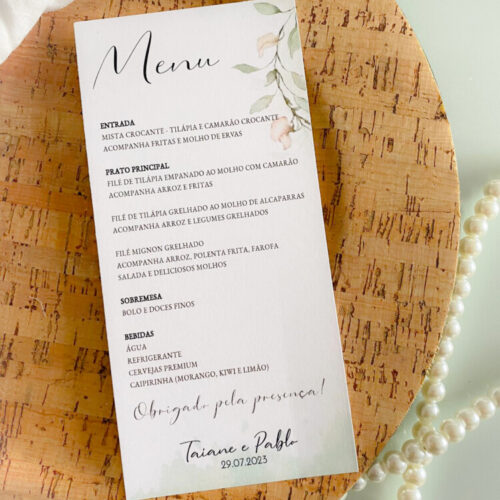 Menu
ENTRADA
MISTA CROCANTE - TILÁPIA E CAMARÃO CROCANTE
ACOMPANHA FRITAS E MOLHO DE ERVAS
PRATO PRINCIPAL
FILÉ DE TILÁPIA EMPANADO AO MOLHO COM CAMARÃO
ACOMPANHA ARROZ E FRITAS
FILÉ DE TILÁPIA GRELHADO AO MOLHO DE ALCAPARRAS
ACOMPANHA ARROZ E LEGUMES GRELHADOS
FILÉ MIGNON GRELHADO
ACOMPANHA ARROZ, POLENTA FRITA, FAROFA
SALADA E DELICIOSOS MOLHOS
SOBREMESA
BOLO E DOCES FINOS
BEBIDAS
ÁGUA
REFRIGERANTE
CERVEJAS PREMIUM
CAIPIRINHA (MORANGO, KIWI E LIMÃO)
Obrigado pela presença!
Taiane e Pablo
29.07.2023